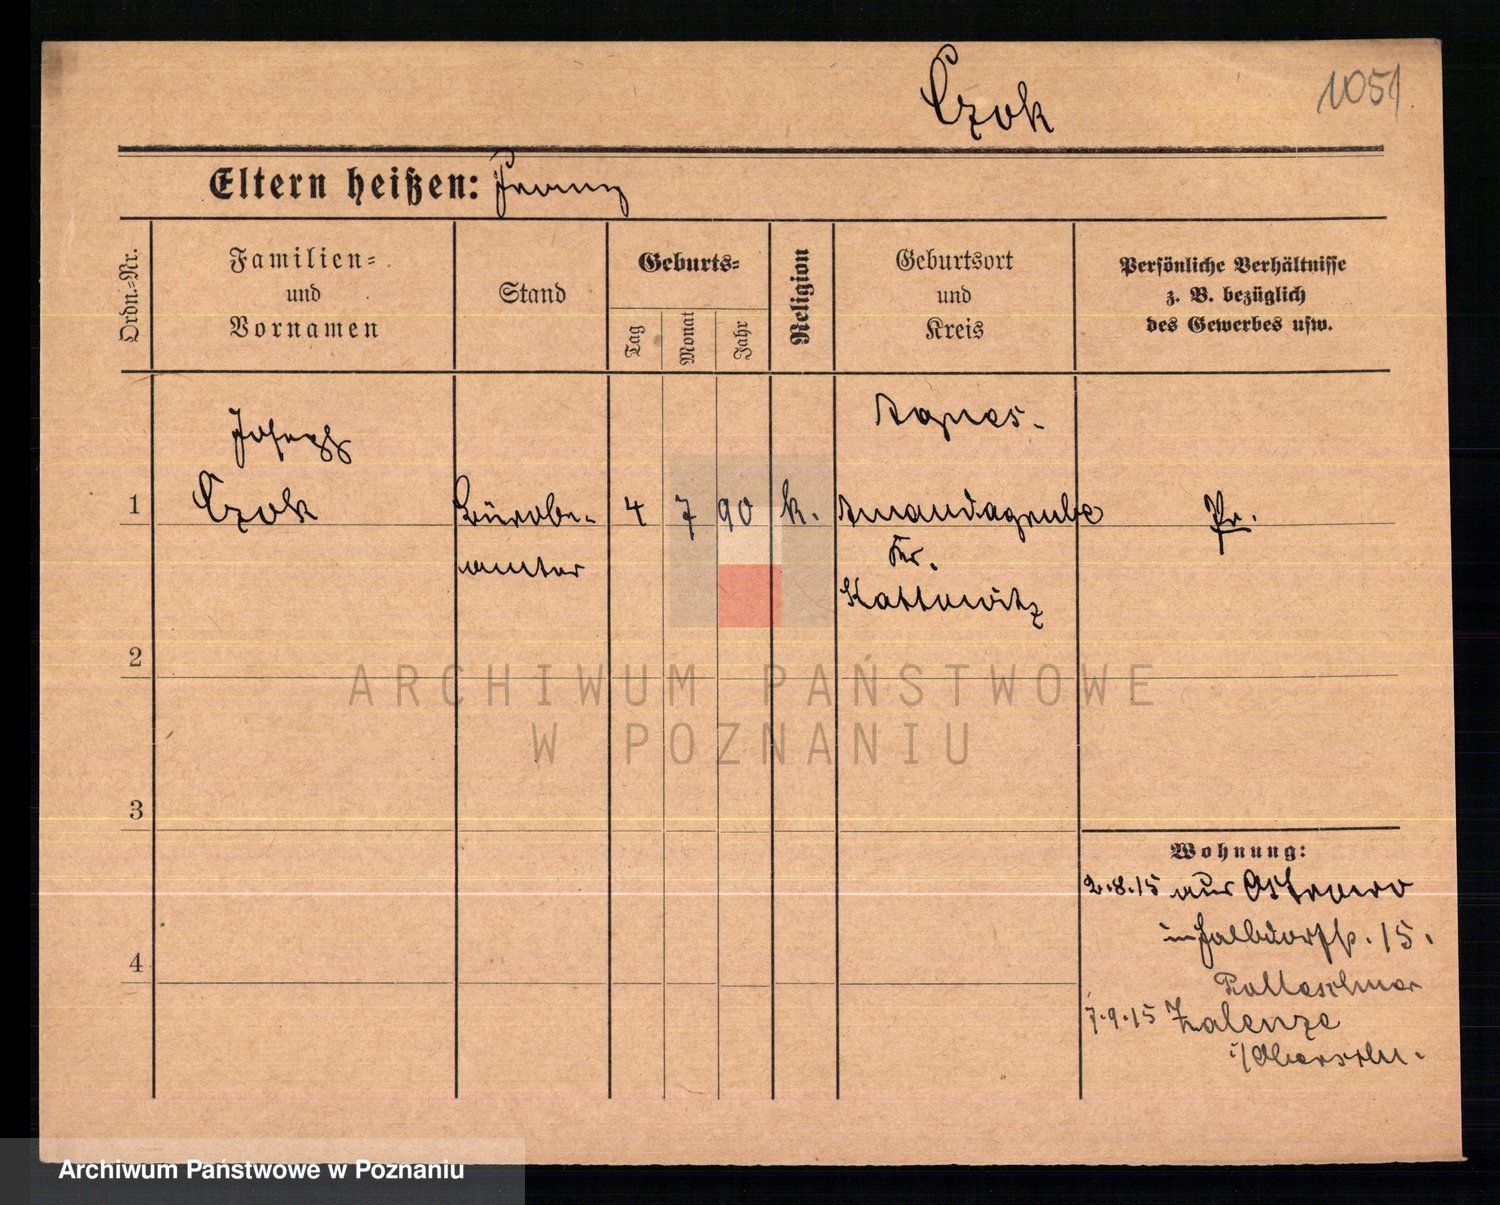 Czok
1051
Eltern heißen: Franz
Ordn.-Nr.
Familien-
und
Vornamen
Stand
Geburts-
Tag
Monat
Jahr
Religion
Geburtsort
und
Kreis
Persönliche Verhältnisse
z. B. bezüglich
des Gewerbes usw.
Joseph
Agnes.
1 Czok Bürobe- 4 7 90 k. Amandagrube Pr.
amter
Kr.
Kattowitz
2
ARCHIWUM PAŃSTWOWE
W POZNANIU
3
Wohnung:
2.8.15 aus Ostrowo
15.
4
7.9.15 Zalenze
i/Oberschl.
Archiwum Państwowe w Poznaniu